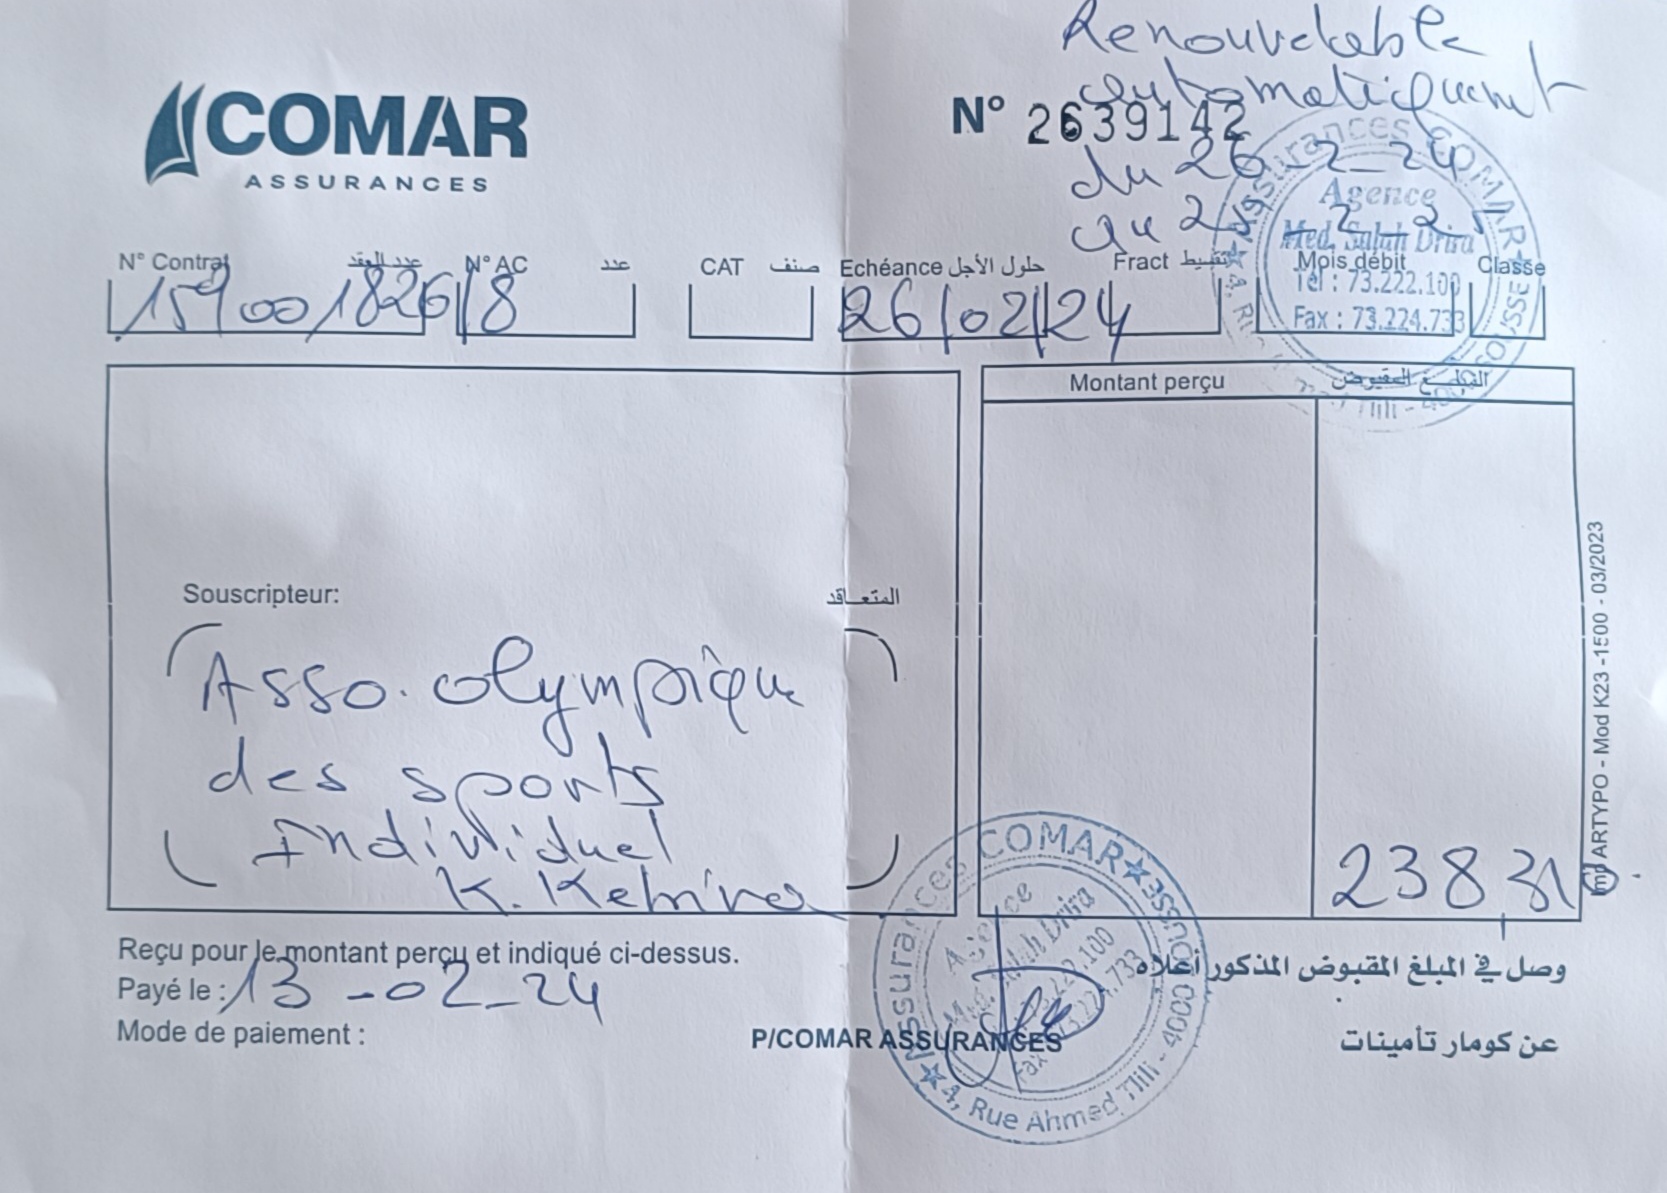 Renouvelable
automatiquemt
COMAR
ASSURANCES
N° 2639142
du 26_2_24
au 2 2_25
Assurances COMAR
Agence
Med. Salah Drira
Tél : 73.222.100
Fax : 73.224.733
N° Contrat عدد العقد N° AC عدد CAT صنف Echéance حلول الأجل Fract تقسيط Mois débit Classe
159001826/8 26/02/24
Montant perçu المبلغ المقبوض
Souscripteur: المتعاقد
Asso. Olympique
des sports
Individuel
K. Kebira
238 310
Imp ARTYPO - Mod K23 -1500 - 03/2023
Reçu pour le montant perçu et indiqué ci-dessus. وصل في المبلغ المقبوض المذكور أعلاه
Payé le : 13 -02_24
Mode de paiement :
P/COMAR ASSURANCES عن كومار تأمينات
Assurances COMAR
Agence
Med. Salah Drira
73.222.100
Fax 73.224.733
4, Rue Ahmed Tlili - 4000 SOUSSE